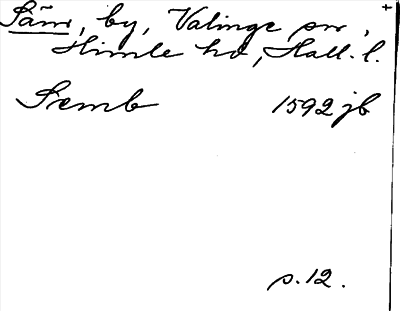 Säm, by, Valinge sn,
Himle hd, Hall. l.
Semb 1592 jb
s. 12.